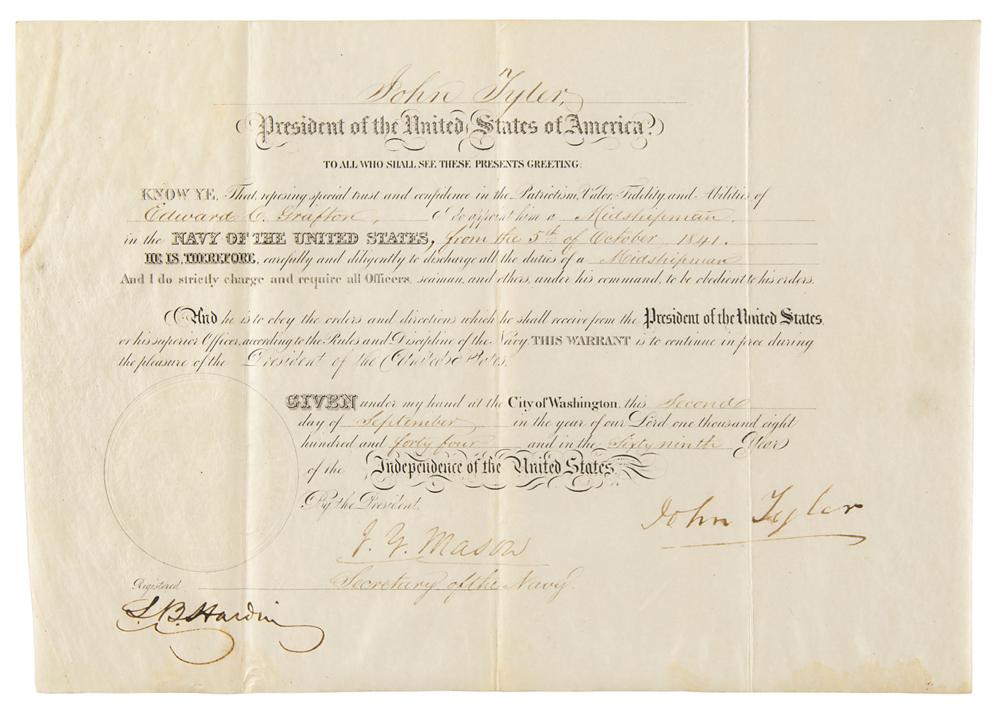 John Tyler,
President of the United States of America,
TO ALL WHO SHALL SEE THESE PRESENTS GREETING:
KNOW YE, That reposing special trust and confidence in the Patriotism, Valor, Fidelity, and Abilities of
Edward C. Grafton, I do appoint him a Midshipman
in the NAVY OF THE UNITED STATES, from the 5th of October 1841.
HE IS, THEREFORE, carefully and diligently to discharge all the duties of a Midshipman
And I do strictly charge and require all Officers, seaman, and others, under his command, to be obedient to his orders.
And he is to obey the orders and directions which he shall receive from the President of the United States,
or his superior Officer, according to the Rules and Discipline of the Navy. THIS WARRANT is to continue in force during
the pleasure of the President of the United States.
GIVEN under my hand at the City of Washington, this Second
day of September in the year of our Lord one thousand eight
hundred and forty four and in the Sixty ninth Year
of the Independence of the United States.
By the President,
John Tyler
J. Y. Mason
Secretary of the Navy.
Registered
L. B. Hardin